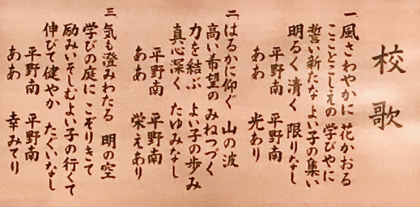 校歌
一 風さわやかに 花かおる
ここどこしえの 学びやに
誓い新たな よい子の集い
明るく清く 限りなし
ああ 平野南 光あり
二 はるかに仰ぐ 山の波
高い希望の みねつづく
力を結ぶ よい子の歩み
真心深く たゆみなし
ああ 平野南 平野南 栄えあり
三 気も澄みわたる 明の空
学びの庭に こぞりきて
励みいそしむ よい子の行くて
伸びて健やか たぐいなし
ああ 平野南 平野南 幸みてり